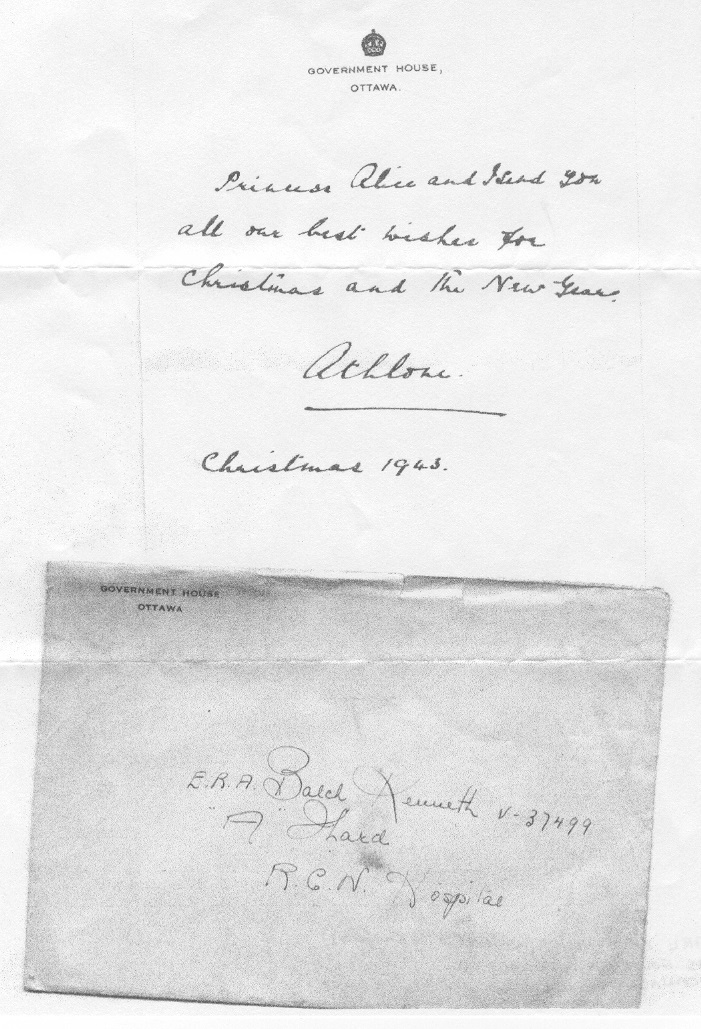 GOVERNMENT HOUSE,
OTTAWA.
Princess Alice and I send you
all our best wishes for
Christmas and the New Year.
Athlone.
Christmas 1943.
GOVERNMENT HOUSE
OTTAWA
E.R.A. Balch Kenneth V-37499
"A" Ward
R.C.N. Hospital